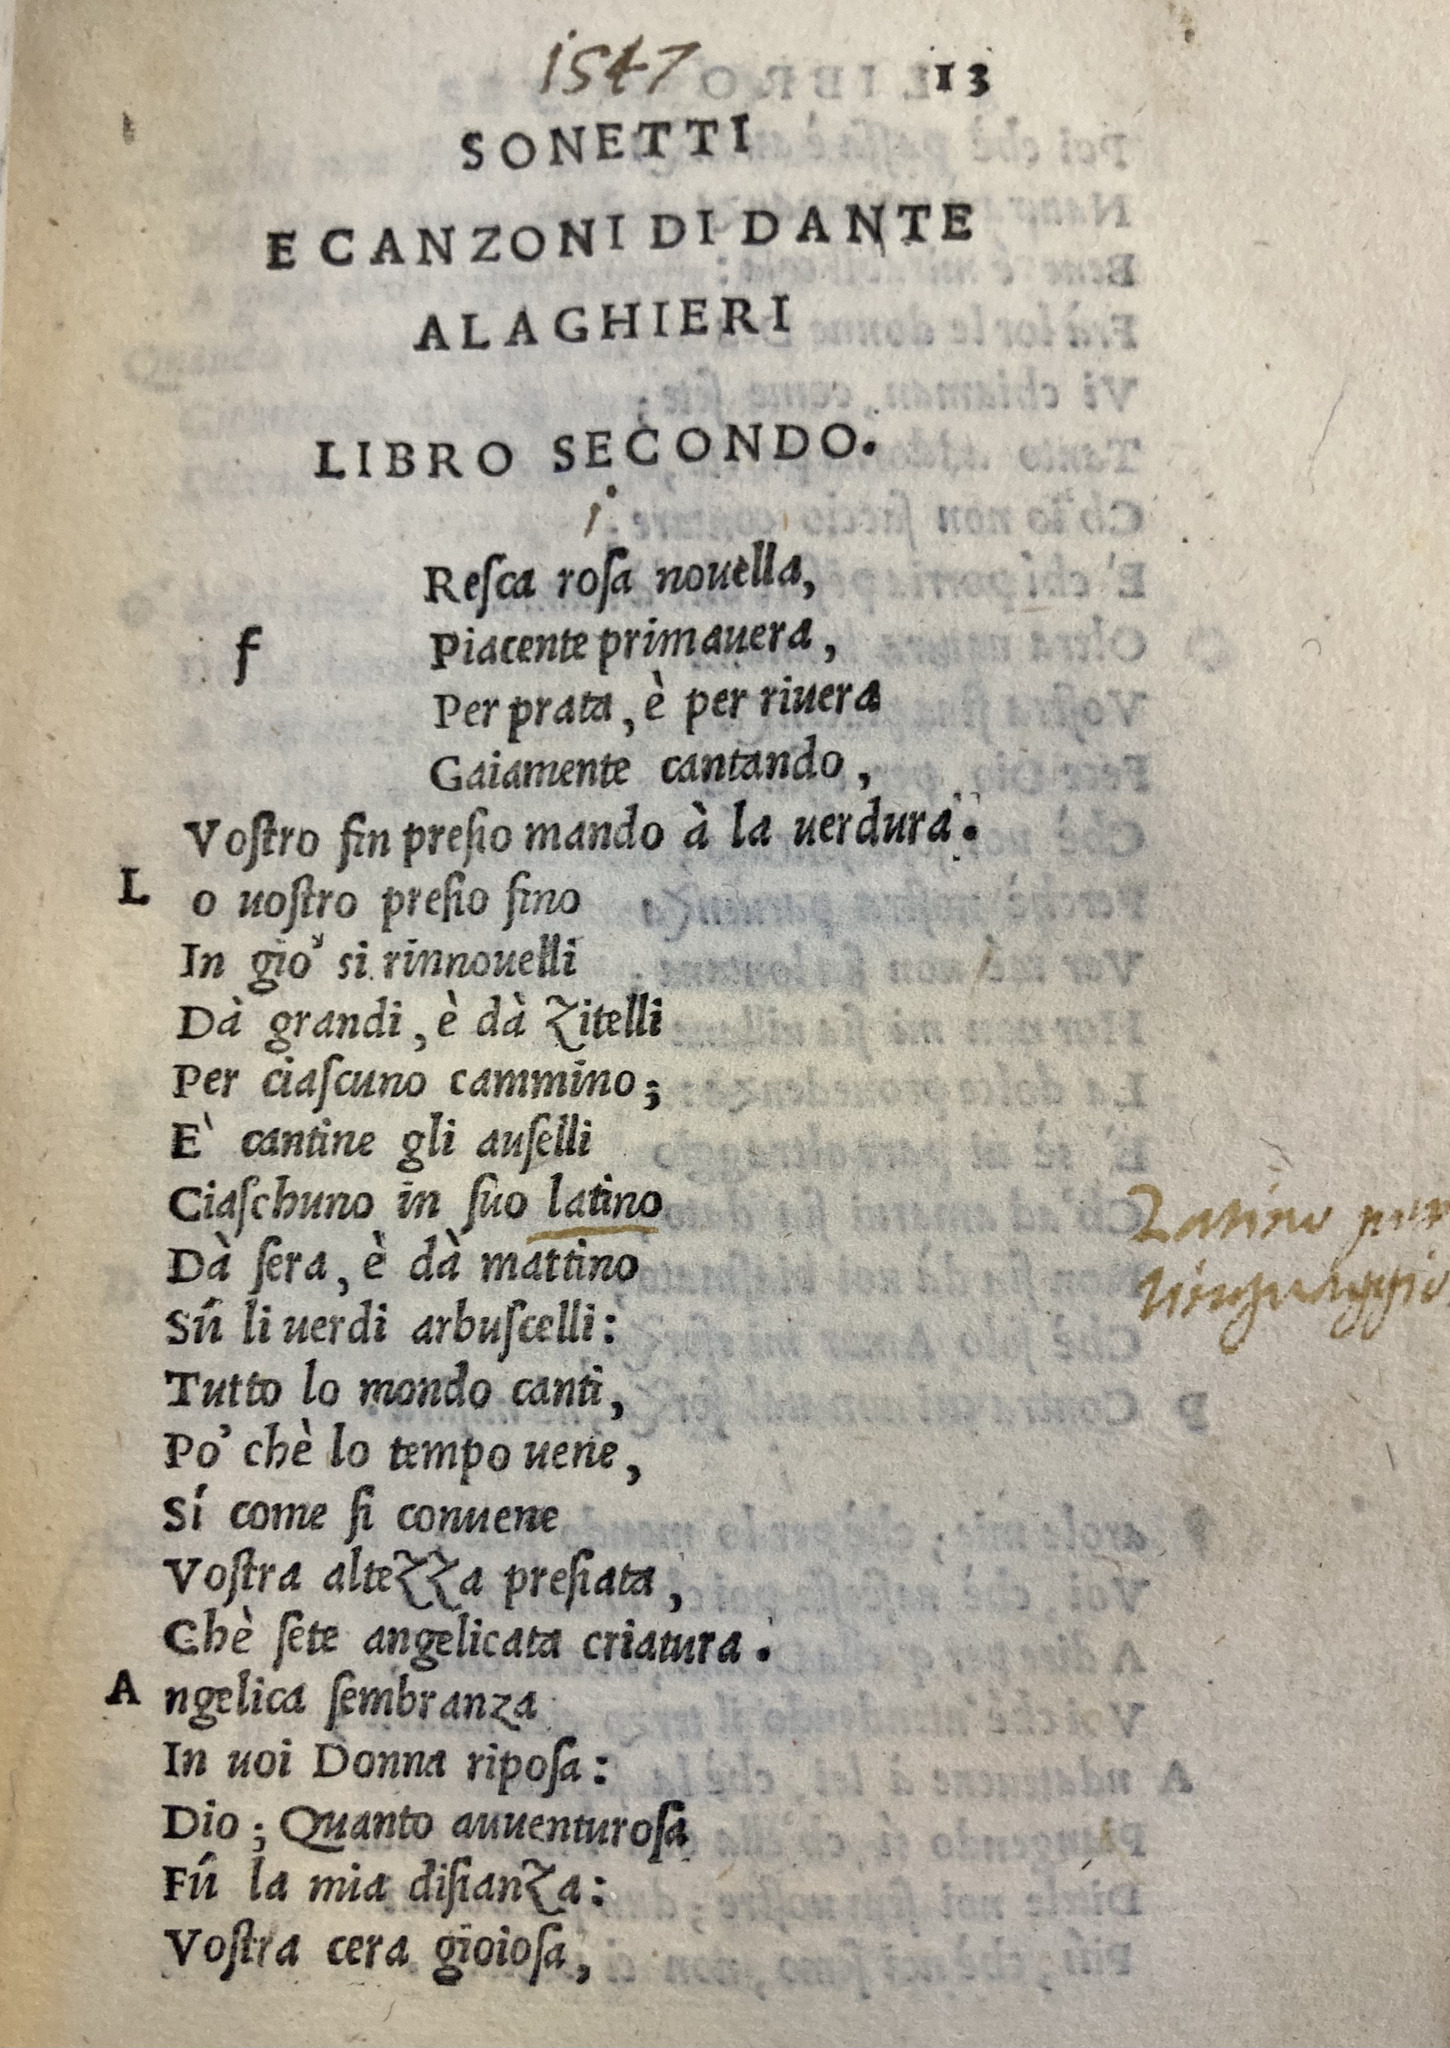 1547
13
SONETTI
E CANZONI DI DANTE
ALAGHIERI
LIBRO SECONDO.
i
f Reſca roſa nouella,
Piacente primauera,
Per prata, è per riuera
Gaiamente cantando,
Voſtro fin preſio mando à la uerdura.
L o uoſtro preſio fino
In gio' si rinnouelli
Dà grandi, è dà Zitelli
Per ciaſcuno cammino;
E' cantine gli auſelli
Ciaſchuno in ſuo latino
Dà ſera, è dà mattino
Sú li uerdi arbuſcelli:
Latino per
linguaggio
Tutto lo mondo canti,
Po' chè lo tempo uene,
Sí come ſi conuene
Voſtra alteZZa preſiata,
Chè ſete angelicata criatura.
A ngelica ſembranza
In uoi Donna ripoſa:
Dio; Quanto auuenturoſa
Fú la mia diſianZa:
Voſtra cera gioioſa,